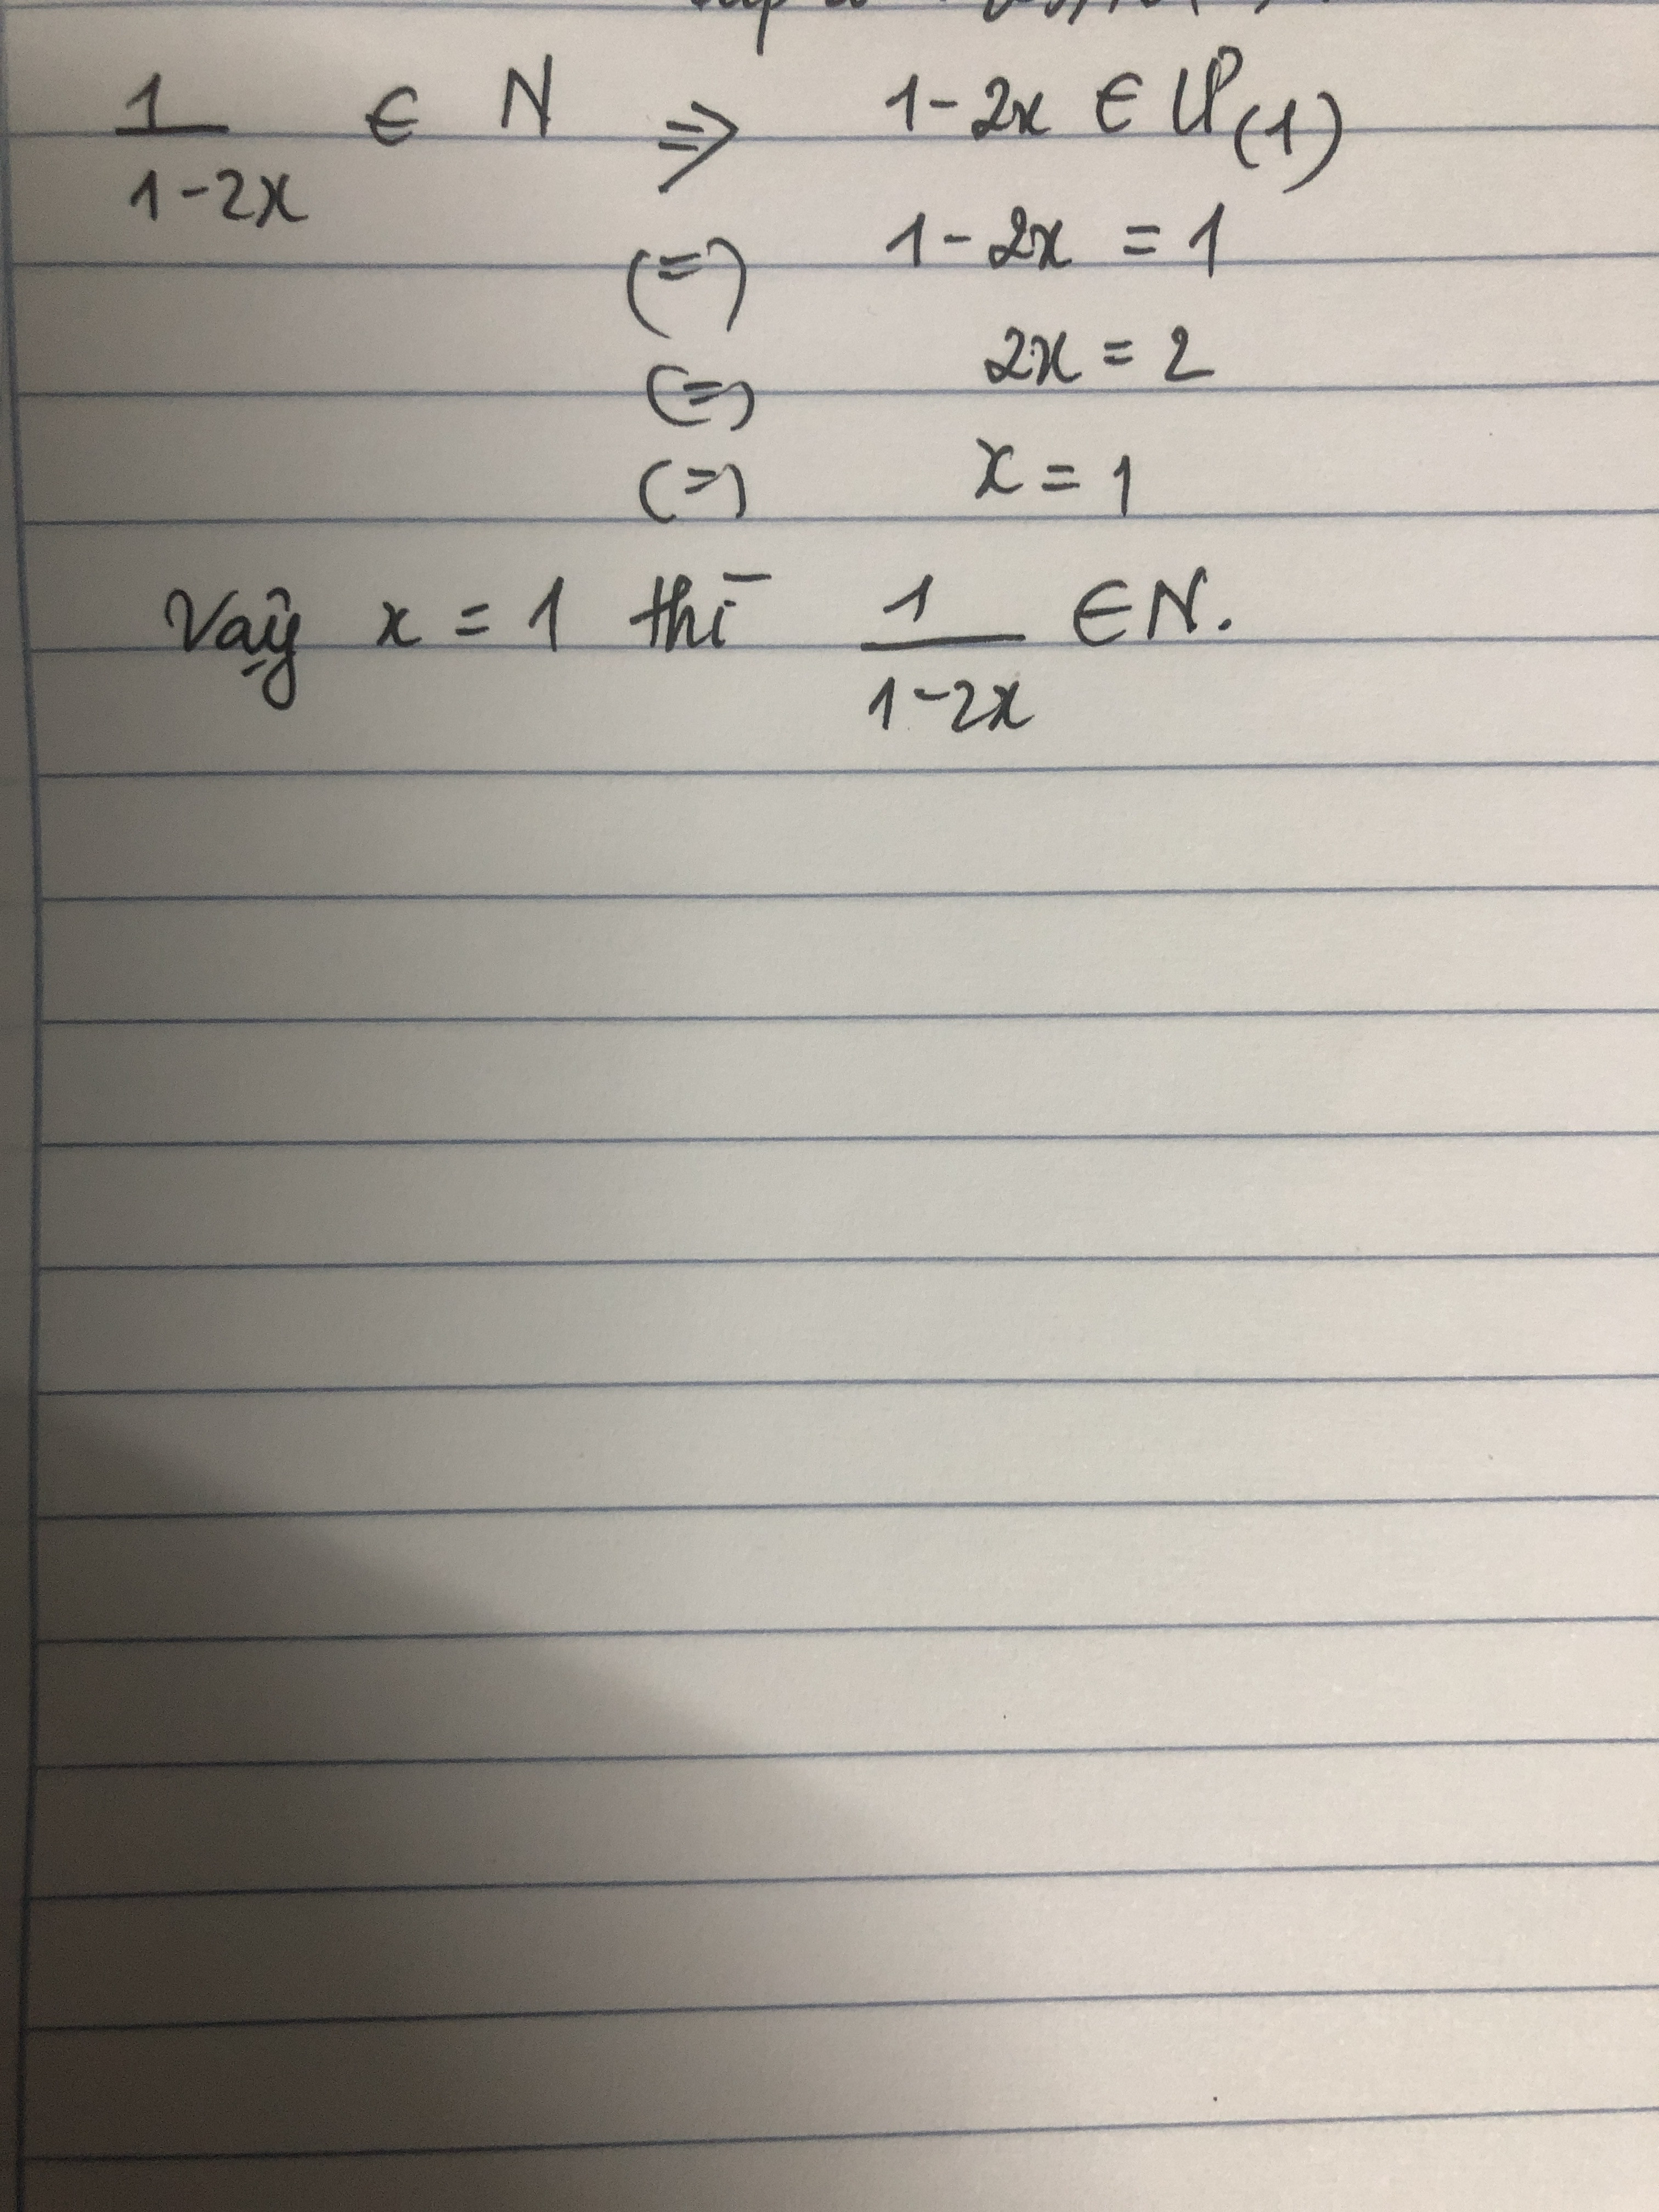 1/(1-2x) ∈ N ⇒ 1-2x ∈ Ư(1)
(=) 1-2x = 1
(=) 2x = 2
(=) x = 1
Vậy x = 1 thì 1/(1-2x) ∈ N.